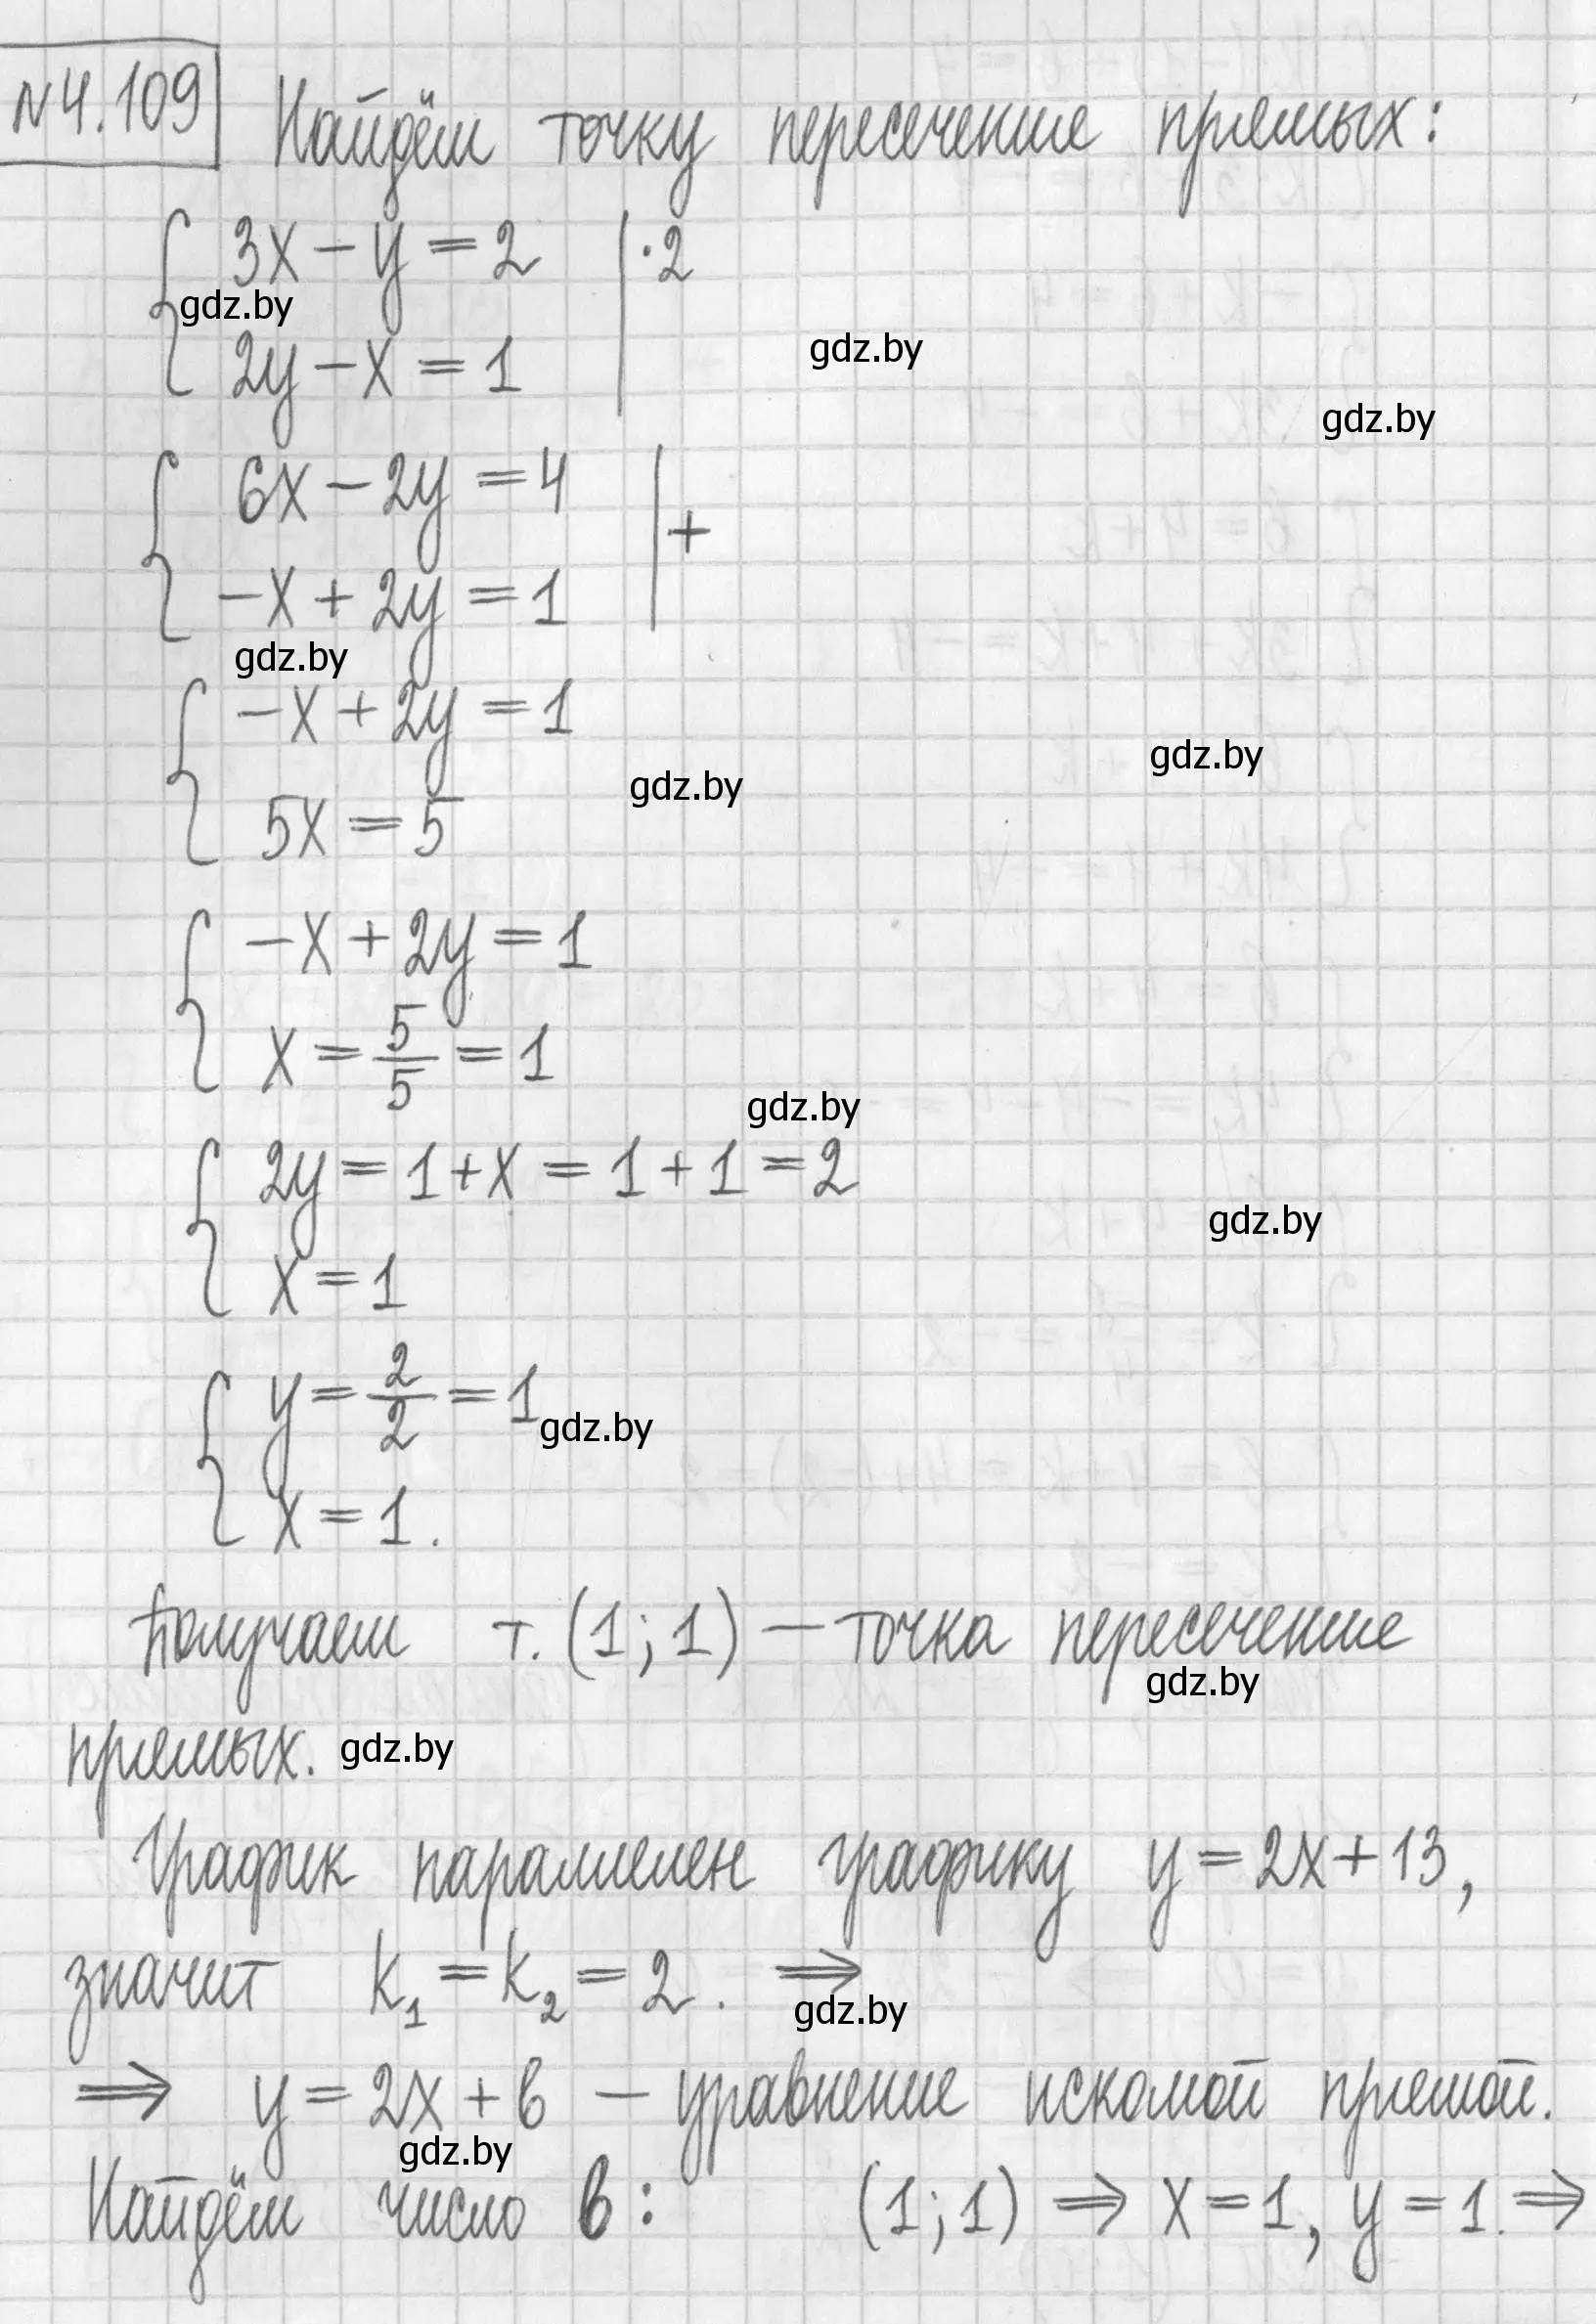 №4.109 Найдём точку пересечение прямых:
{ 3x − y = 2 | ·2
gdz.by
2y − x = 1 |
gdz.by
gdz.by
{ 6x − 2y = 4 | +
−x + 2y = 1 |
gdz.by
{ −x + 2y = 1
gdz.by
gdz.by
5x = 5
{ −x + 2y = 1
x = 5/5 = 1
gdz.by
{ 2y = 1 + x = 1 + 1 = 2
gdz.by
x = 1
{ y = 2/2 = 1
gdz.by
x = 1.
Получаем т. (1; 1) − точка пересечение
gdz.by
прямых. gdz.by
График параллелен графику y = 2x + 13,
значит k₁ = k₂ = 2. ⇒
gdz.by
⇒ y = 2x + b − уравнение искомой прямой.
gdz.by
Найдём число b: (1; 1) ⇒ x = 1, y = 1. ⇒